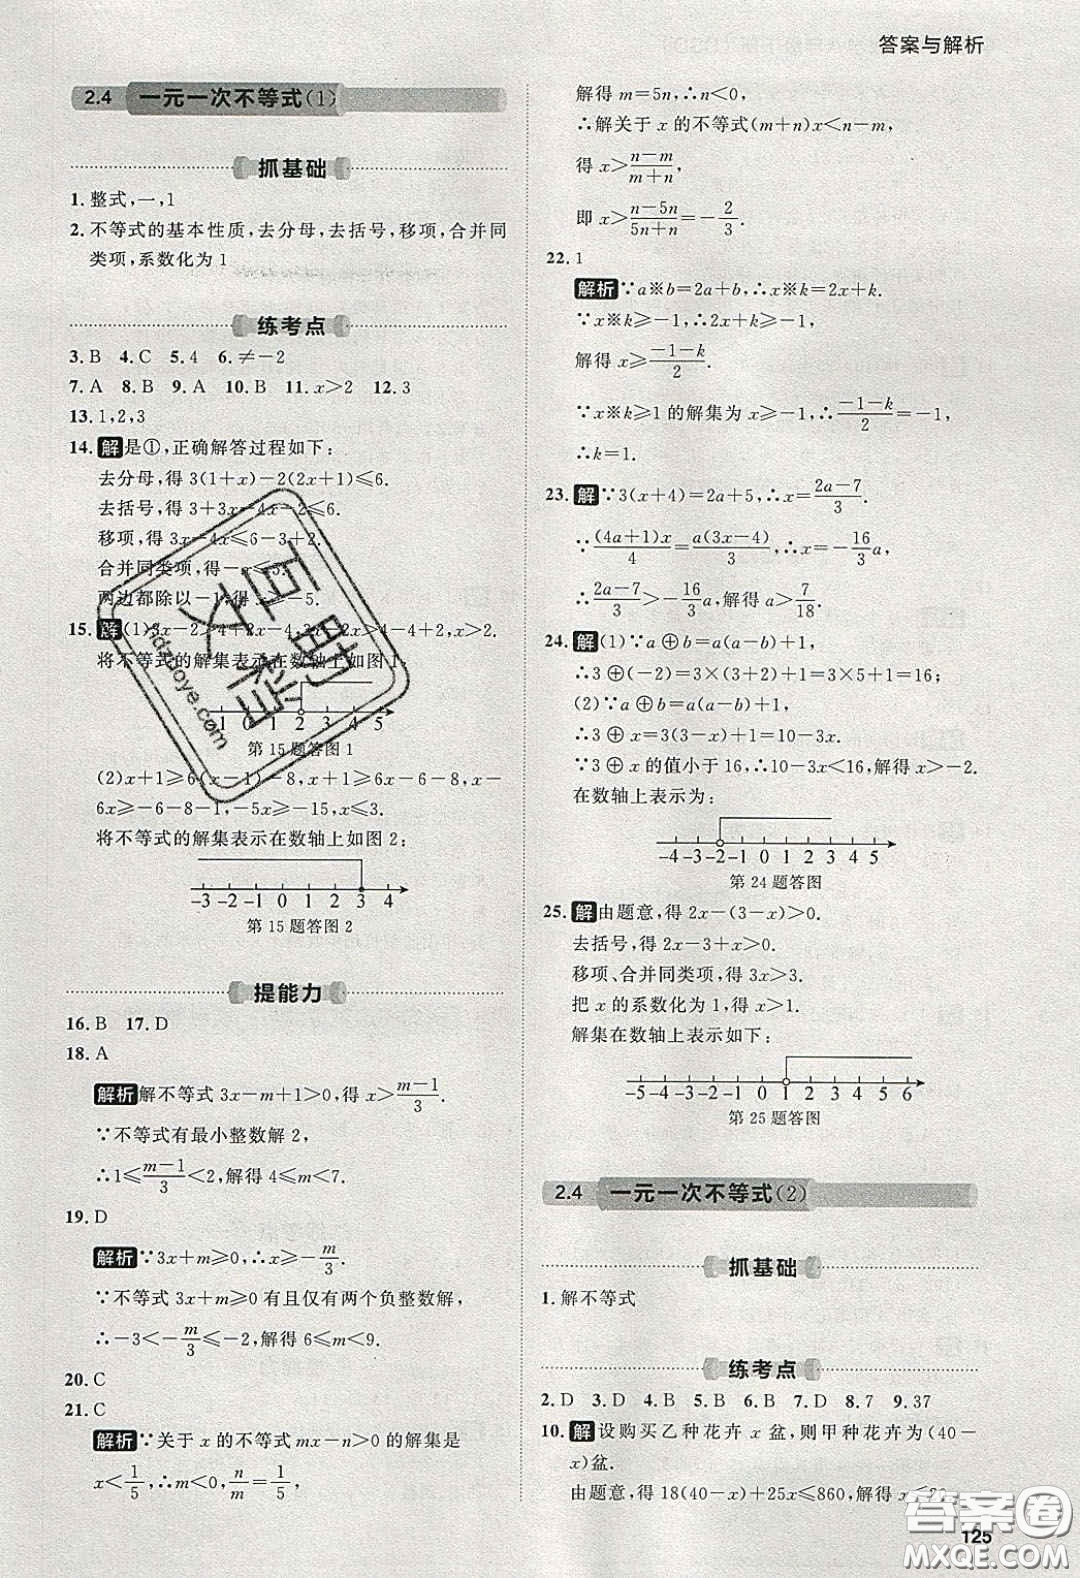 答案与解析
2.4 一元一次不等式(1)
抓基础
1. 整式,一,1
2. 不等式的基本性质,去分母,去括号,移项,合并同
类项,系数化为 1
练考点
3. B 4. C 5. 4 6. ≠-2
7. A 8. B 9. A 10. B 11. x>2 12. 3
13. 1,2,3
14. 解 是①,正确解答过程如下:
去分母,得 3(1+x)-2(2x+1)≤6.
去括号,得 3+3x-4x-2≤6.
移项,得 3x-4x≤6-3+2.
合并同类项,得-x≤5.
两边都除以-1,得 x≥-5.
15. 解 (1)3x-2>4+2x-4,3x-2x>4-4+2,x>2.
将不等式的解集表示在数轴上如图 1:
-1 0 1 2 3 4 5
第 15 题答图 1
(2)x+1≥6(x-1)-8,x+1≥6x-6-8,x-
6x≥-6-8-1,-5x≥-15,x≤3.
将不等式的解集表示在数轴上如图 2:
-3 -2 -1 0 1 2 3 4
第 15 题答图 2
提能力
16. B 17. D
18. A
解析 解不等式 3x-m+1>0,得 x>\frac{m-1}{3}.
∵不等式有最小整数解 2,
∴1≤\frac{m-1}{3}<2,解得 4≤m<7.
19. D
解析 ∵3x+m≥0,∴x≥-\frac{m}{3}.
∵不等式 3x+m≥0 有且仅有两个负整数解,
∴-3<-\frac{m}{3}≤-2,解得 6≤m<9.
20. C
21. C
解析 ∵关于 x 的不等式 mx-n>0 的解集是
x<\frac{1}{5},∴m<0,\frac{n}{m}=\frac{1}{5},
解得 m=5n,∴n<0,
∴解关于 x 的不等式(m+n)x<n-m,
得 x>\frac{n-m}{m+n},
即 x>\frac{n-5n}{5n+n}=-\frac{2}{3}.
22. 1
解析 ∵a※b=2a+b,∴x※k=2x+k.
∵x※k≥-1,∴2x+k≥-1,
解得 x≥\frac{-1-k}{2}.
∵x※k≥1 的解集为 x≥-1,∴\frac{-1-k}{2}=-1,
∴k=1.
23. 解 ∵3(x+4)=2a+5,∴x=\frac{2a-7}{3}.
∵\frac{(4a+1)x}{4}=\frac{a(3x-4)}{3},∴x=-\frac{16}{3}a,
∴\frac{2a-7}{3}>-\frac{16}{3}a,解得 a>\frac{7}{18}.
24. 解 (1)∵a⊕b=a(a-b)+1,
∴3⊕(-2)=3×(3+2)+1=3×5+1=16;
(2)∵a⊕b=a(a-b)+1,
∴3⊕x=3(3-x)+1=10-3x.
∵3⊕x 的值小于 16,∴10-3x<16,解得 x>-2.
在数轴上表示为:
-4 -3 -2 -1 0 1 2 3 4 5
第 24 题答图
25. 解 由题意,得 2x-(3-x)>0.
去括号,得 2x-3+x>0.
移项、合并同类项,得 3x>3.
把 x 的系数化为 1,得 x>1.
解集在数轴上表示如下:
-5 -4 -3 -2 -1 0 1 2 3 4 5 6
第 25 题答图
2.4 一元一次不等式(2)
抓基础
1. 解不等式
练考点
2. D 3. D 4. B 5. B 6. B 7. D 8. 7 9. 37
10. 解 设购买乙种花卉 x 盆,则甲种花卉为(40-
x)盆.
由题意,得 18(40-x)+25x≤860,解得 x≤20.
125
答案圈
MXQE.COM